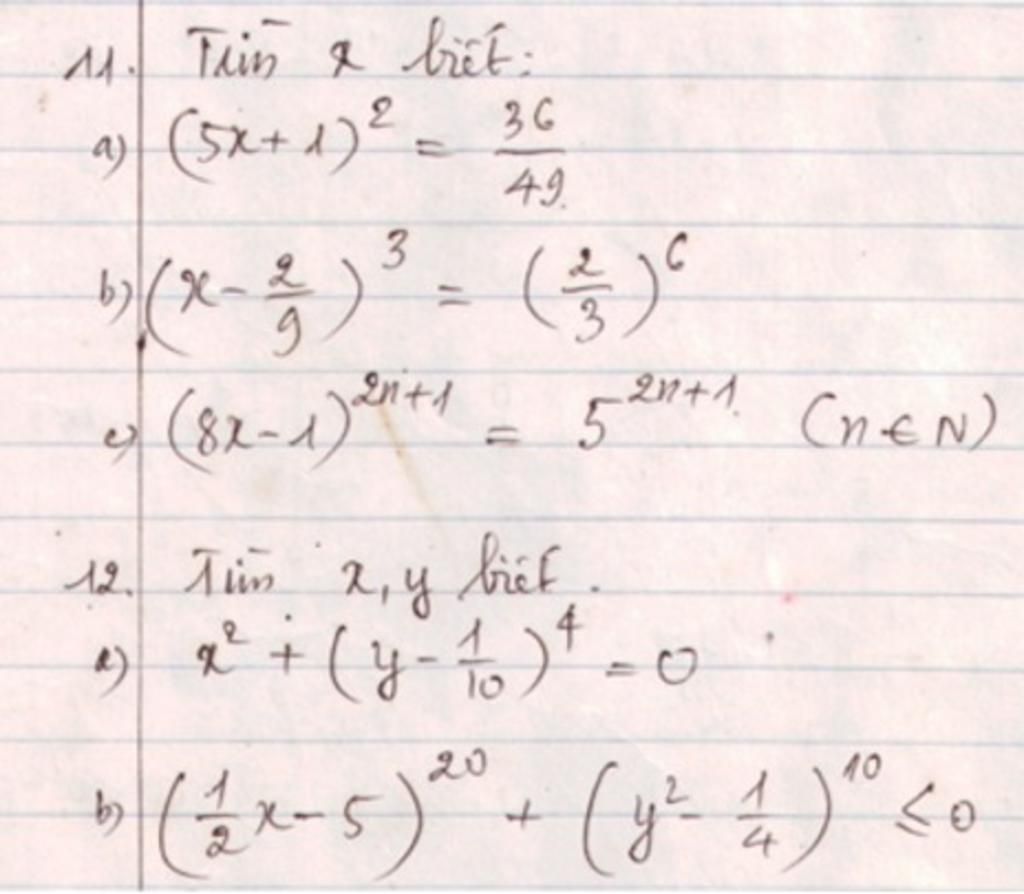 11. Tìm x biết:
a) (5x+1)² = 36/49
b) (x - 2/9)³ = (2/3)⁶
c) (8x-1)²ⁿ⁺¹ = 5²ⁿ⁺¹ (n ∈ N)
12. Tìm x, y biết.
a) x² + (y - 1/10)⁴ = 0
b) (1/2x - 5)²⁰ + (y² - 1/4)¹⁰ ≤ 0